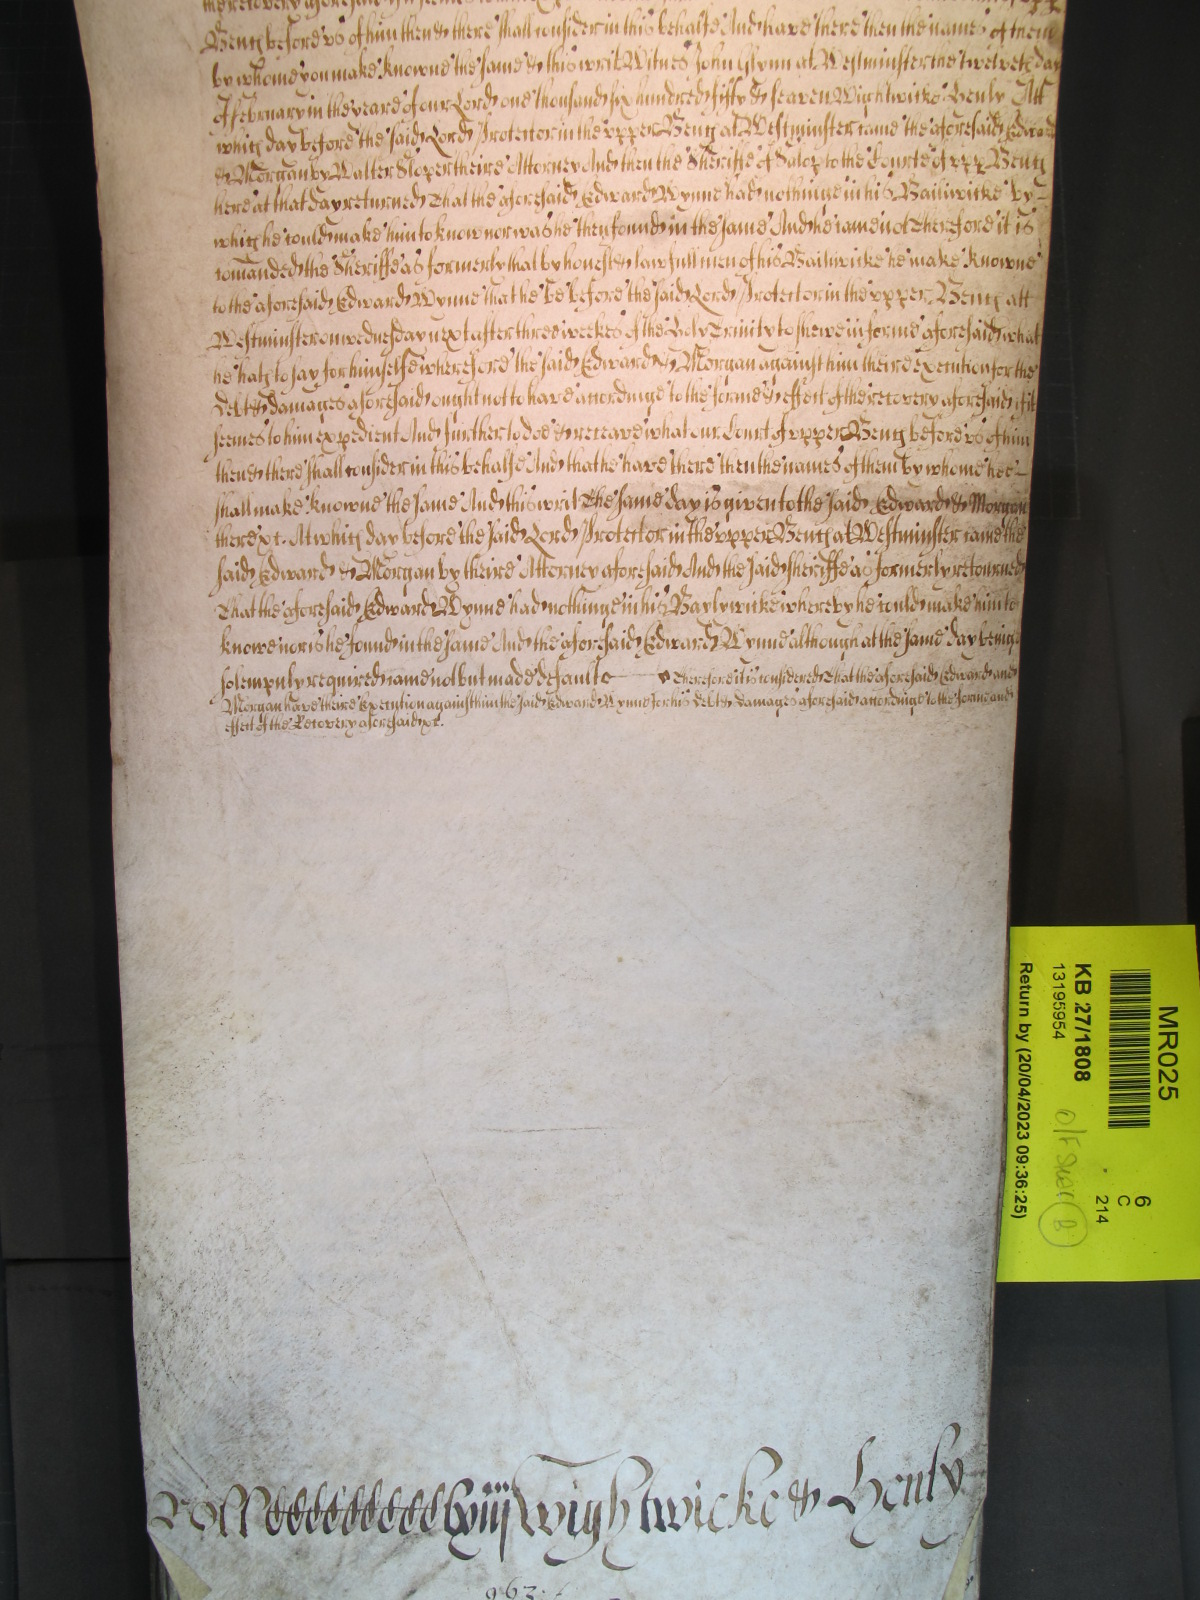 Bench before us of him then & there shall consider in this behalfe And have there then the names of them
by whome you make knowne the same & this writ Witnes John Glynn at Westminster the twelveth day
of February in the yeare of our Lord one thousand six hundred fifty & seaven Wightwicke Henly Att
which day before the said Lord Protector in the upper Bench at Westminster came the aforesaid Edward
& Morgan by Walter Sloper theire Attorney And then the Sheriffe of Salop to the Courte of upp Bench
here at that day returned That the aforesaid Edward Wynne had nothinge in his Bailiwicke by
which he could make him to know nor was he then found in the same And he came not Therefore it is
comanded the Sheriffe as formerly that by honest & lawfull men of his Bailiwicke he make knowne
to the aforesaid Edward Wynne that he be before the said Lord Protector in the upper Bench att
Westminster on wednesday next after three weekes of the Holy Trinity to shewe in forme aforesaid what
he hath to say for himselfe wherefore the said Edward & Morgan against him theire execution for the
debt & damages aforesaid ought not to have accordinge to the forme & effect of the recovery aforesaid if it
seemes to him expedient And further to doe & receave what our Court of upper Bench before us of him
then & there shall consider in this behalfe And that he have there then the names of them by whome hee
shall make knowne the same And this writ The same day is given to the said Edward & Morgan
there &c. At which day before the said Lord Protector in the upper Bench at Westminster came the
said Edward & Morgan by theire Attorney aforesaid And the said Sheriffe as formerly retourned
That the aforesaid Edward Wynne had nothinge in his Baylywicke whereby he could make him to
knowe nor is he found in the same And the aforesaid Edward Wynne although at the same day being
solempnly required came not but made default Therefore it is considered That the aforesaid Edward and
Morgan have theire Execution against him the said Edward Wynne for his debt & damages aforesaid accordinge to the forme and
effect of the Recovery aforesaid &c.
Roll Wightwicke & Henly
963
MR025
6
C
214
KB 27/1808
13195954
Return by (20/04/2023 09:36:25)
B